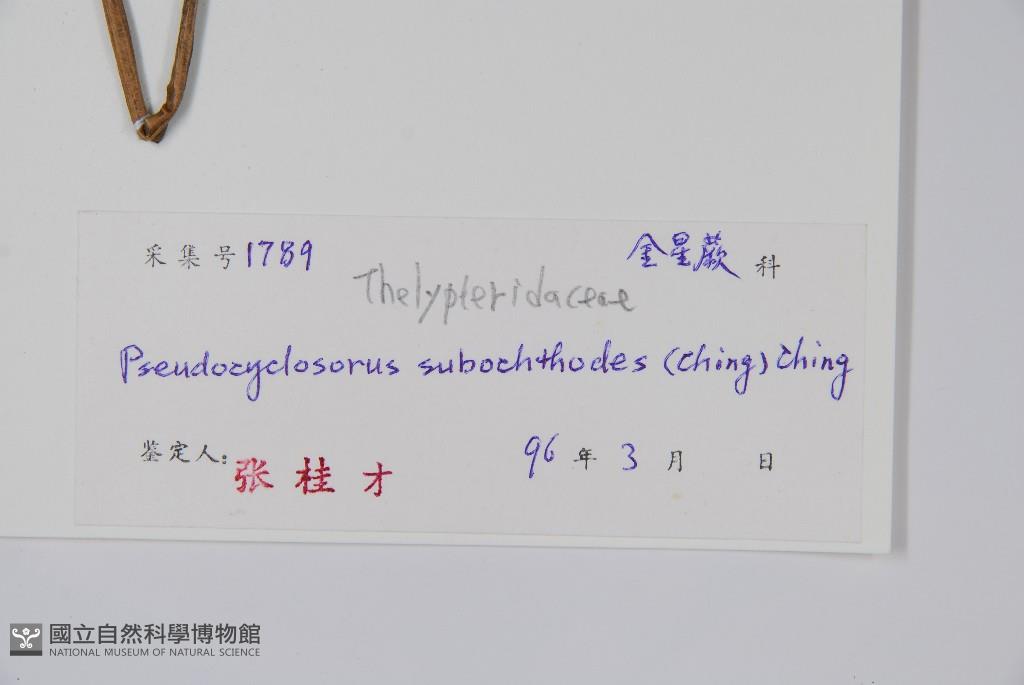 采集号 1789 金星蕨 科
Thelypteridaceae
Pseudocyclosorus subochthodes (Ching) Ching
鉴定人: 张桂才 96 年 3 月 日
國立自然科學博物館
NATIONAL MUSEUM OF NATURAL SCIENCE